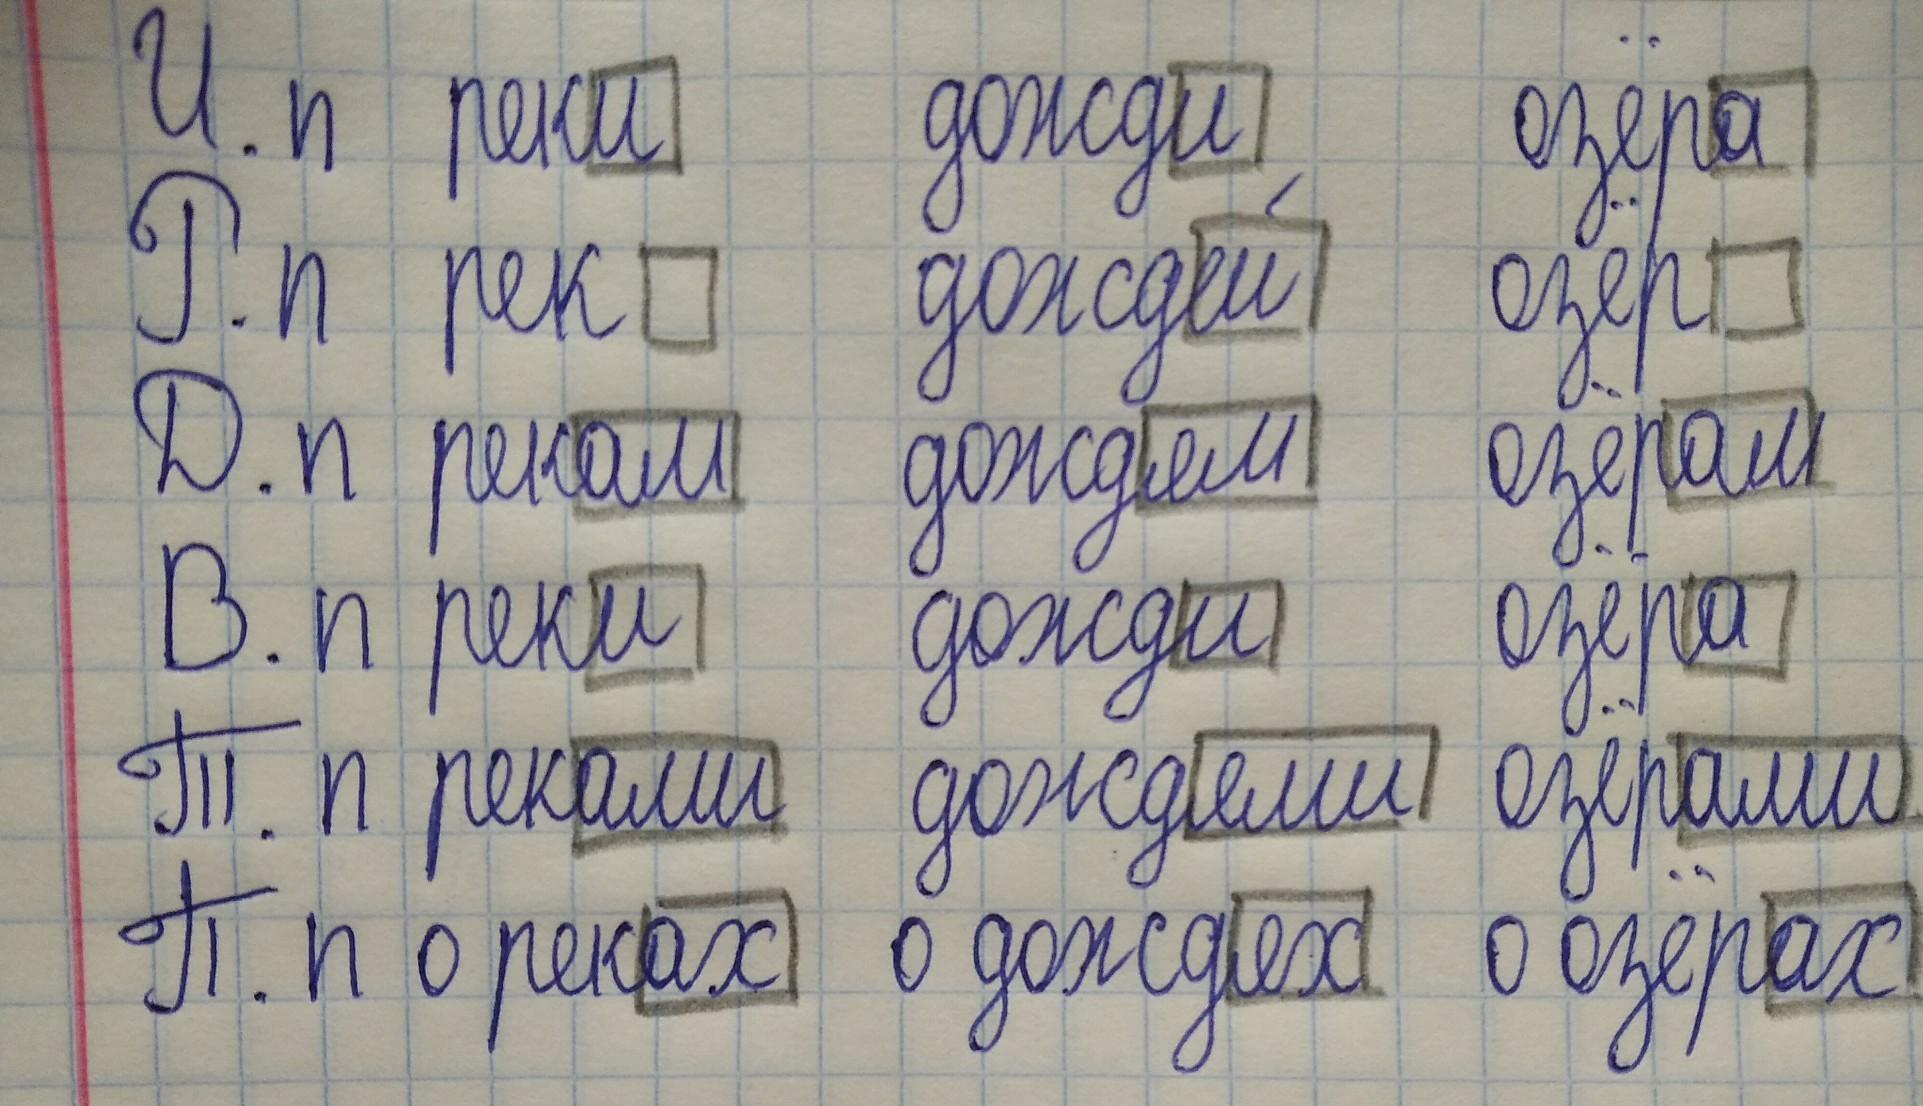 И. п реки дожди озёра
Р. п рек дождей озёр
Д. п рекам дождям озёрам
В. п реки дожди озёра
Т. п реками дождями озёрами
П. п о реках о дождях о озёрах